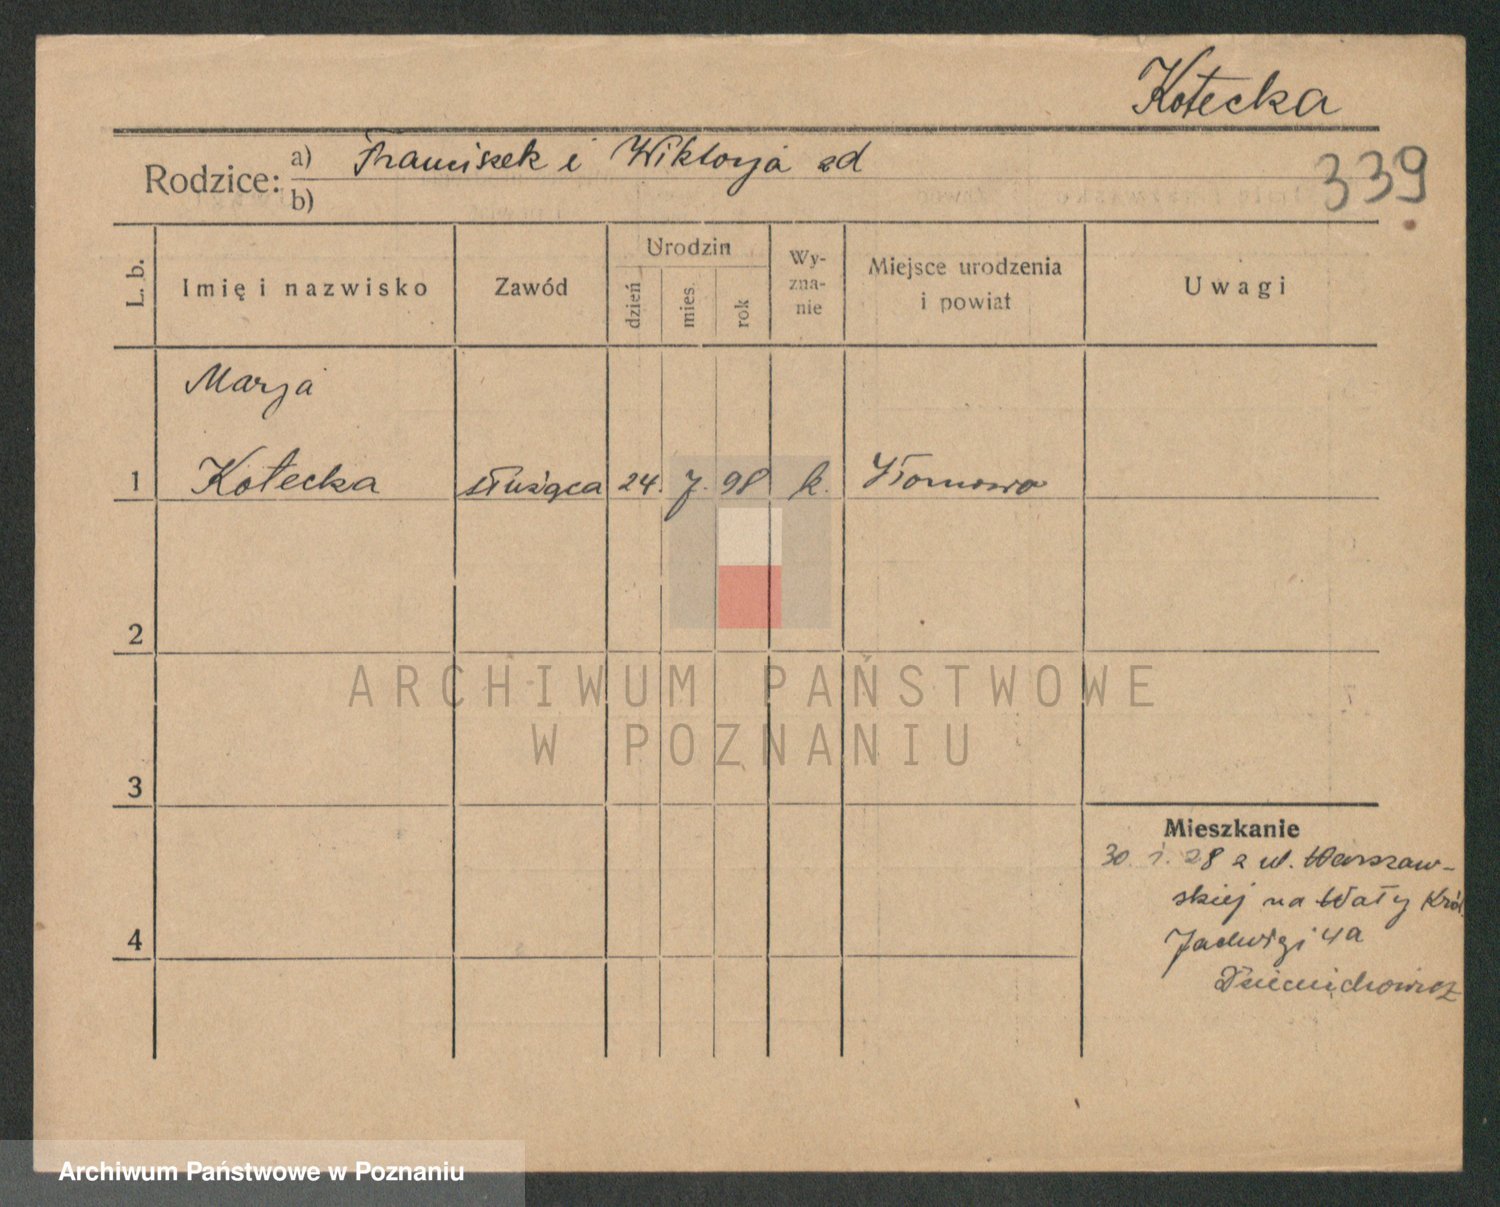 Kotecka
Rodzice: a) Franciszek i Wiktorja zd
b)
339
L. b.
Imię i nazwisko
Zawód
Urodzin
dzień
mies.
rok
Wy-
zna-
nie
Miejsce urodzenia
i powiat
Uwagi
Marja
1 Kotecka służąca 24. 7. 98 k.
2
3
4
Mieszkanie
30. 1. 28 z ul. Warszaw-
skiej na Wały Król.
Jadwigi 4a
ARCHIWUM PAŃSTWOWE
W POZNANIU
Archiwum Państwowe w Poznaniu